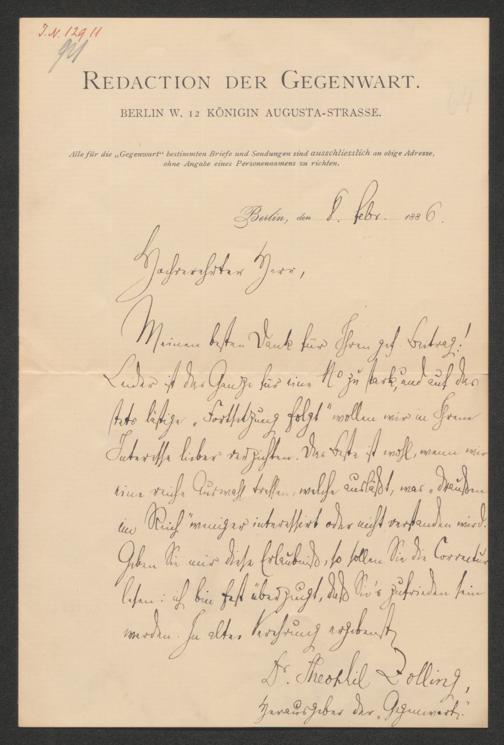 J.N. 12911
REDACTION DER GEGENWART.
BERLIN W. 12 KÖNIGIN AUGUSTA-STRASSE.
Alle für die „Gegenwart“ bestimmten Briefe und Sendungen sind ausschliesslich an obige Adresse,
ohne Angabe eines Personennamens zu richten.
Berlin, den 8. Febr. 1886.
Hochverehrter Herr,
Meinen besten Dank für Ihren gef. Beitrag!
Leider ist das Ganze für eine No zu stark, und auf das
stets lästige „Fortsetzung folgt“ wollen wir in Ihrem
Interesse lieber verzichten. Das Beste ist wohl, wenn wir
eine reiche Auswahl treffen, welche ausläßt, was „draußen
im Reich“ weniger interessirt oder nicht verstanden wird.
Geben Sie mir diese Erlaubniß, so sollen Sie die Correctur
lesen: ich bin fest überzeugt, daß Sie's zufrieden sein
werden. In alter Verehrung ergebenst
Dr. Theophil Zolling,
Herausgeber der „Gegenwart“.